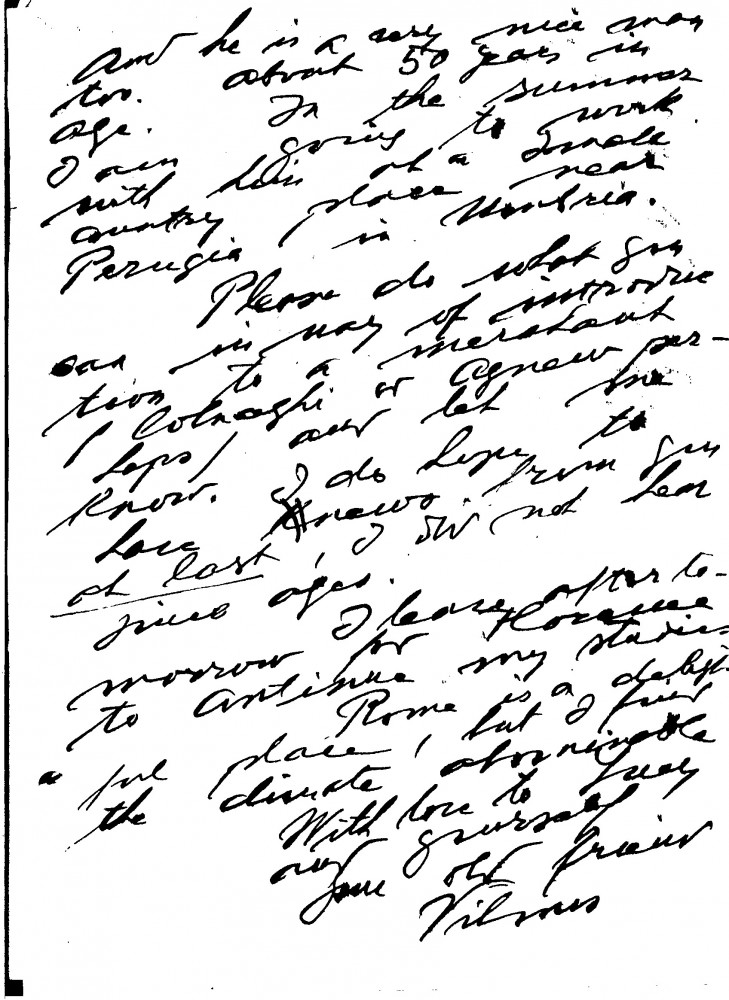 And he is a very nice man
too. about 50 years in
age. In the summer
I am going to work
with him at a small
country place near
Perugia in Umbria.
Please do what you
can in way of introduc
tion to a merchant
/ Colnaghi or Agnew per-
haps / and let me
know. I do hope to
have news from you
at last, I did not hear
since ages.
I leave after to-
morrow for Florence
to continue my studies
Rome is a delight
ful place, but I find
the climate abominable
With love to
and yourself
your old friend
Vilmos